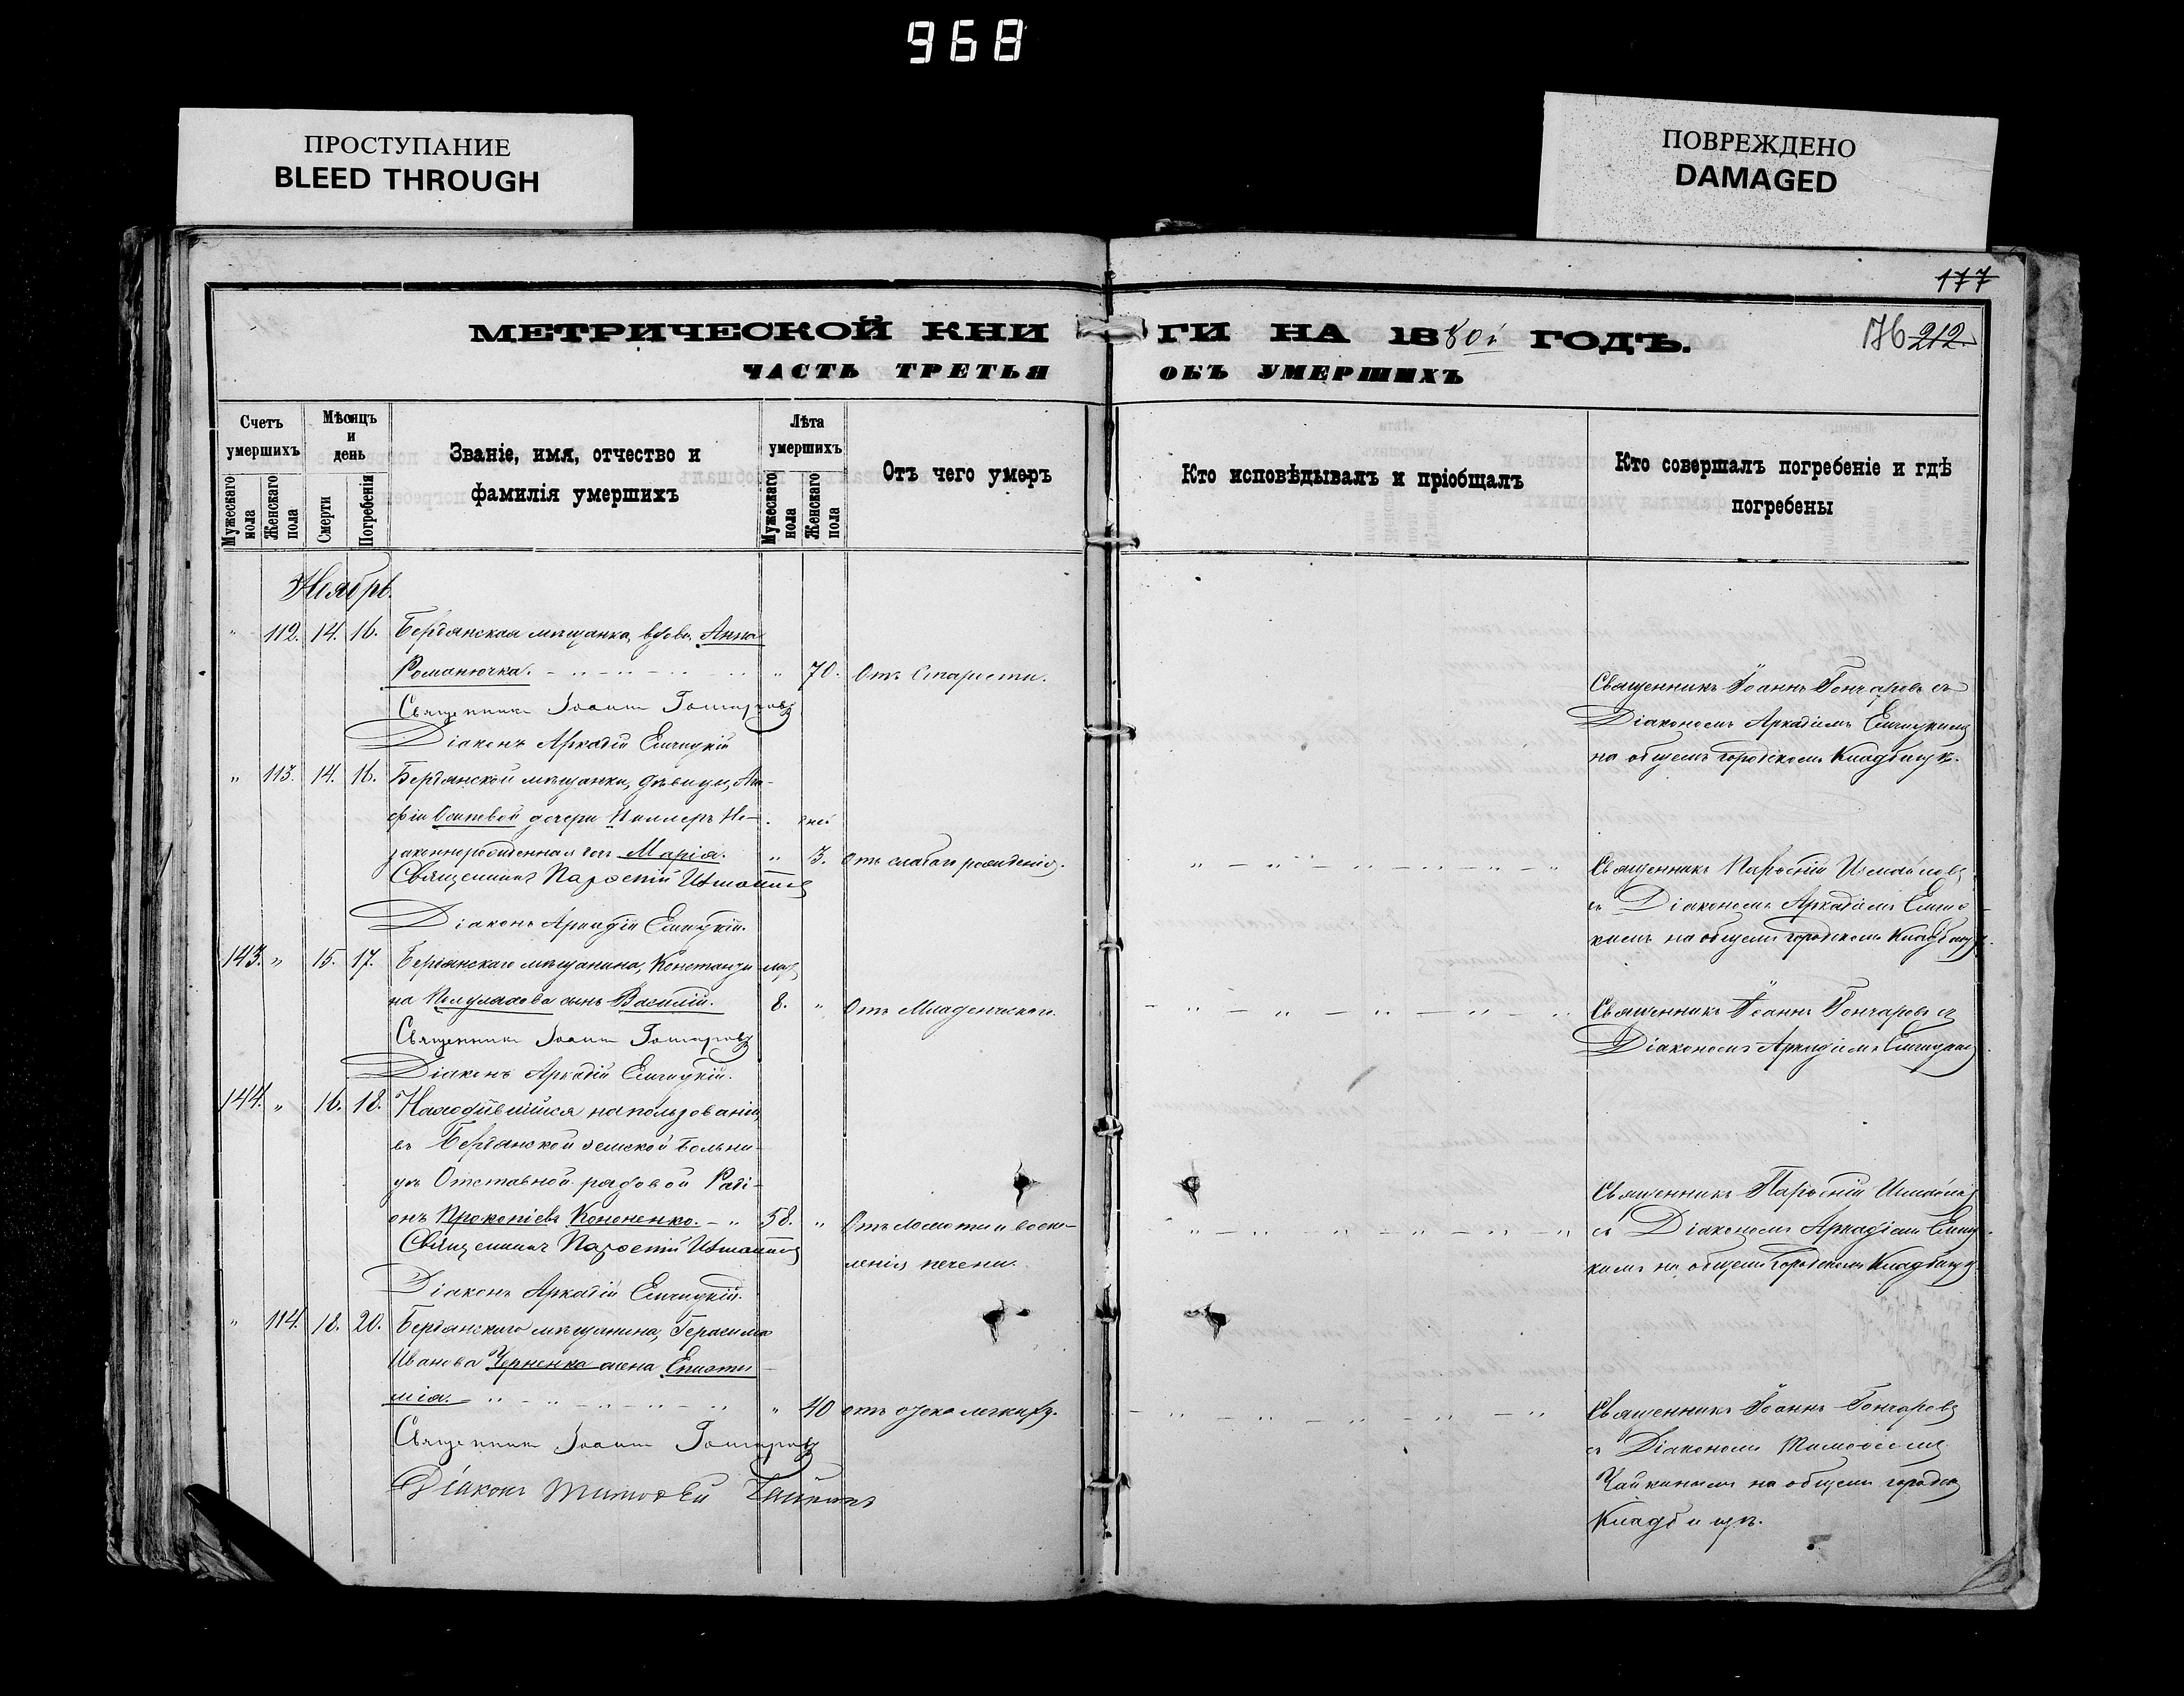 968
ПРОСТУПАНИЕ
BLEED THROUGH
ПОВРЕЖДЕНО
DAMAGED
177
МЕТРИЧЕСКОЙ КНИ ГИ НА 1880й ГОДЪ.
176 212.
ЧАСТЬ ТРЕТЬЯ ОБЪ УМЕРШИХЪ
Счетъ умершихъ
Мужескаго пола
Женскаго пола
Мѣсяцъ и день
Смерти
Погребенія
Званіе, имя, отчество и фамилія умершихъ
Лѣта умершихъ
Мужескаго пола
Женскаго пола
Отъ чего умеръ
Кто исповѣдывалъ и пріобщалъ
Кто совершалъ погребеніе и гдѣ погребены
Ноябрь.
" 112. 14. 16. Бердянская мѣщанка, вдова, Анна
Романючка. " 70. Отъ Старости.
Священникъ Іоаннъ Гончаровъ съ
Священникъ Іоаннъ Гончаровъ
Діакономъ Аркадіемъ Елчицкимъ
Діаконъ Аркадій Елчицкій
на общемъ городскомъ Кладбищѣ.
" 113. 14. 16. Бердянской мѣщанки, дѣвицы,
дочери незаконнорожденная дочь Марія. " дней 3. Отъ слабаго рожденія.
Священникъ Парѳеній Измайловъ
Священникъ Парѳеній Измайловъ
съ Діакономъ Аркадіемъ Елчиц-
Діаконъ Аркадій Елчицкій.
кимъ на общемъ городскомъ Кладбищѣ.
143. " 15. 17. Бердянскаго мѣщанина, Константи-
на сынъ Василій. 8. " Отъ Младенческой.
Священникъ Іоаннъ Гончаровъ съ
Священникъ Іоаннъ Гончаровъ
Діакономъ Аркадіемъ Елчицкимъ
Діаконъ Аркадій Елчицкій.
144. " 16. 18. Находившійся на пользованіи,
въ Бердянской земской больни-
цѣ Отставной рядовой Роді-
онъ Прокопіевъ Кононенко. 58. " Отъ ломоты и воспа-
ленія печени.
Священникъ Парѳеній Измайловъ
Священникъ Парѳеній Измайловъ
съ Діакономъ Аркадіемъ Елчиц-
Діаконъ Аркадій Елчицкій.
кимъ на общемъ городскомъ Кладбищѣ.
" 114. 18. 20. Бердянскаго мѣщанина, Герасима
Иванова Черненка жена Еписти-
мія. " 40 отъ отека легкихъ.
Священникъ Іоаннъ Гончаровъ
Священникъ Іоаннъ Гончаровъ
съ Діакономъ Тимоѳеемъ
Діаконъ Тимоѳей Чайкинъ
Чайкинымъ на общемъ городск.
Кладбищѣ.